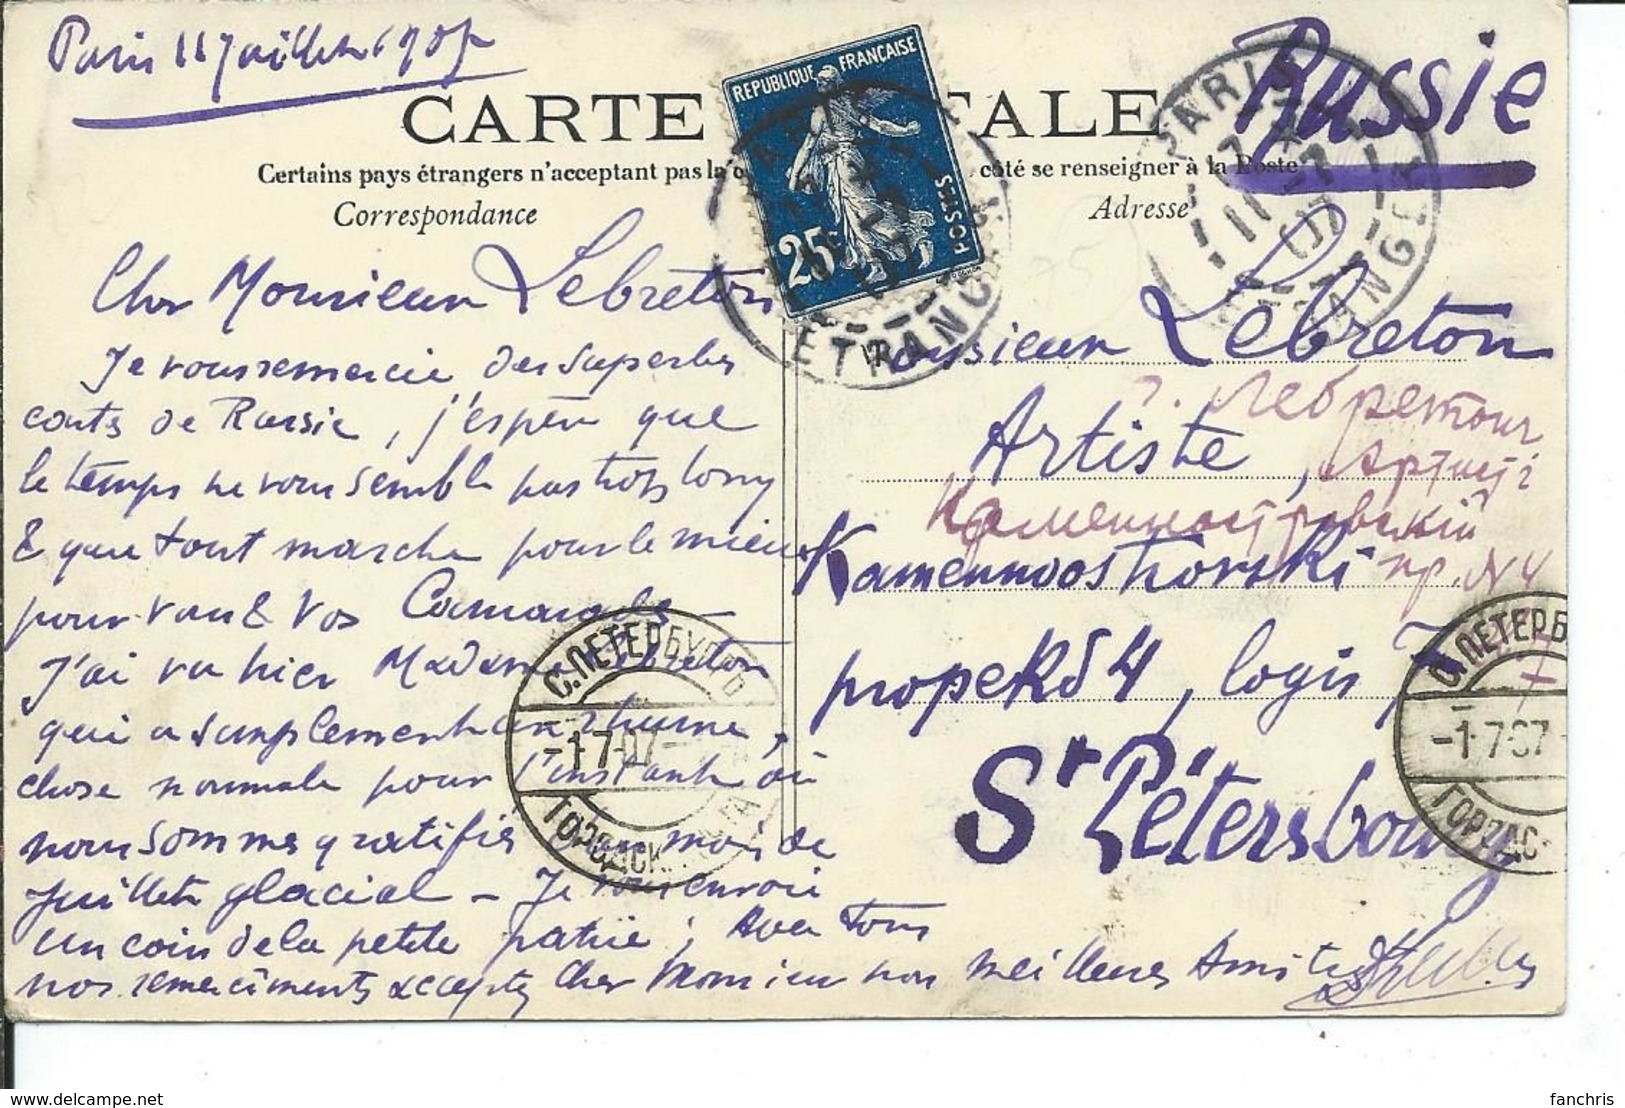 Paris 11 Juillet 1907
Russie
CARTE TALE
Certains pays étrangers n'acceptant pas la côté se renseigner à la Poste
Correspondance
Adresse
REPUBLIQUE FRANÇAISE
25c
POSTES
PARIS
ETRANGER
PARIS
11
07
Cher Monsieur Lebreton
Je vous remercie des superbes
contes de Russie, j'espère que
le temps ne vous semble pas trop long
& que tout marche pour le mieux
pour vous & vos Camarades
J'ai vu hier Madame Lebreton
qui a simplement un rhume,
chose normale pour l'instant où
nous sommes gratifiés un mois de
Juillet glacial - Je vous envoie
un coin de la petite patrie ; Avec tous
nos remerciments acceptez Cher Monsieur nos meilleures Amitiés
Monsieur Lebreton
Artiste,
Kamennoostrovski
propekd 4, logis 7
St Pétersbourg
Г. Лебретонъ
Артисту
Каменноостровский
пр. N 4
7
С.ПЕТЕРБУРГЪ
-1-7-07-
С.ПЕТЕРБ
-1-7-07-
delcampe.net
fanchris